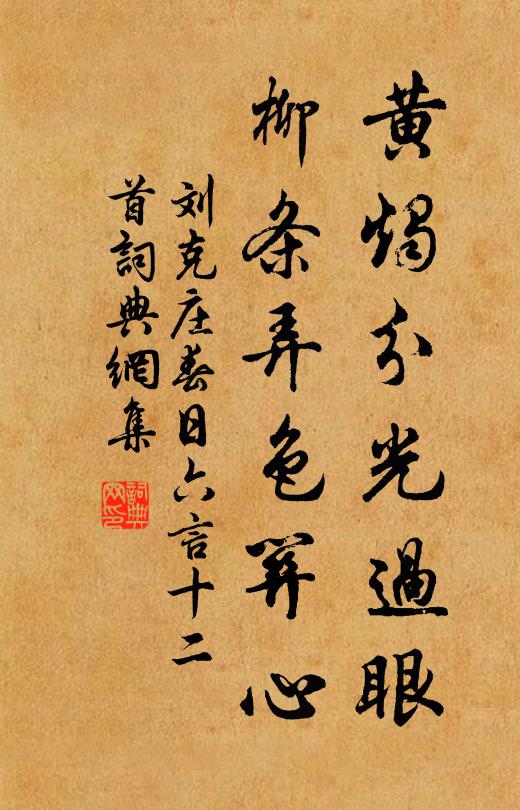 黄燭分光過眼
柳条弄色關心
刘克庄春日六言十二
首詞典網集
詞典網印